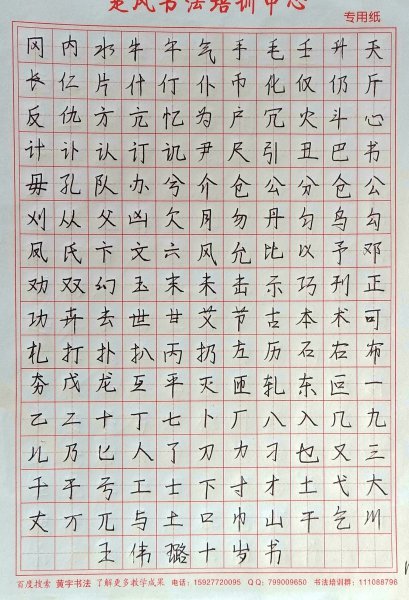 楚风书法培训中心
专用纸
冈内水牛午气手毛壬升夭
长仁片什仃仆币化仅仍斤
反仇方亢忆为户冗火斗心
计讣认订讥尹尺引丑巴书
毋孔队办兮介仓公分仓公
刈从父凶欠月勿丹匀乌勾
凤氏卞文六风允比以予邓
劝双幻玉末未击示巧刊正
功卉去世甘艾节古本术可
札打扑扒丙扔左历石右布
夯戊龙互平灭匝轧东叵一
乙二十丁七卜厂八入几九
儿乃匕人了刀力刁也又三
干于亏工士下寸才土弋大
丈万兀与土口巾山干乞川
王伟璐十岁书
百度搜索 黄字书法 了解更多教学成果 电话：15927720095 QQ：799009650 书法培训群：111088796